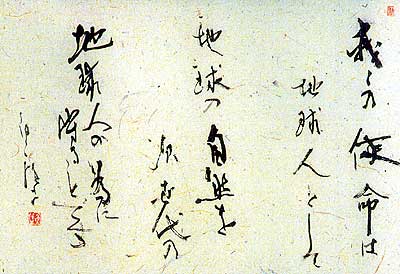 我々の使命は
地球人として
地球の自然を
次世代の
地球人の為に
ことである